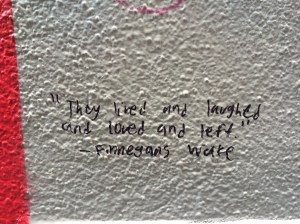 "They lived and laughed
and loved and left"
- Finnegans Wake